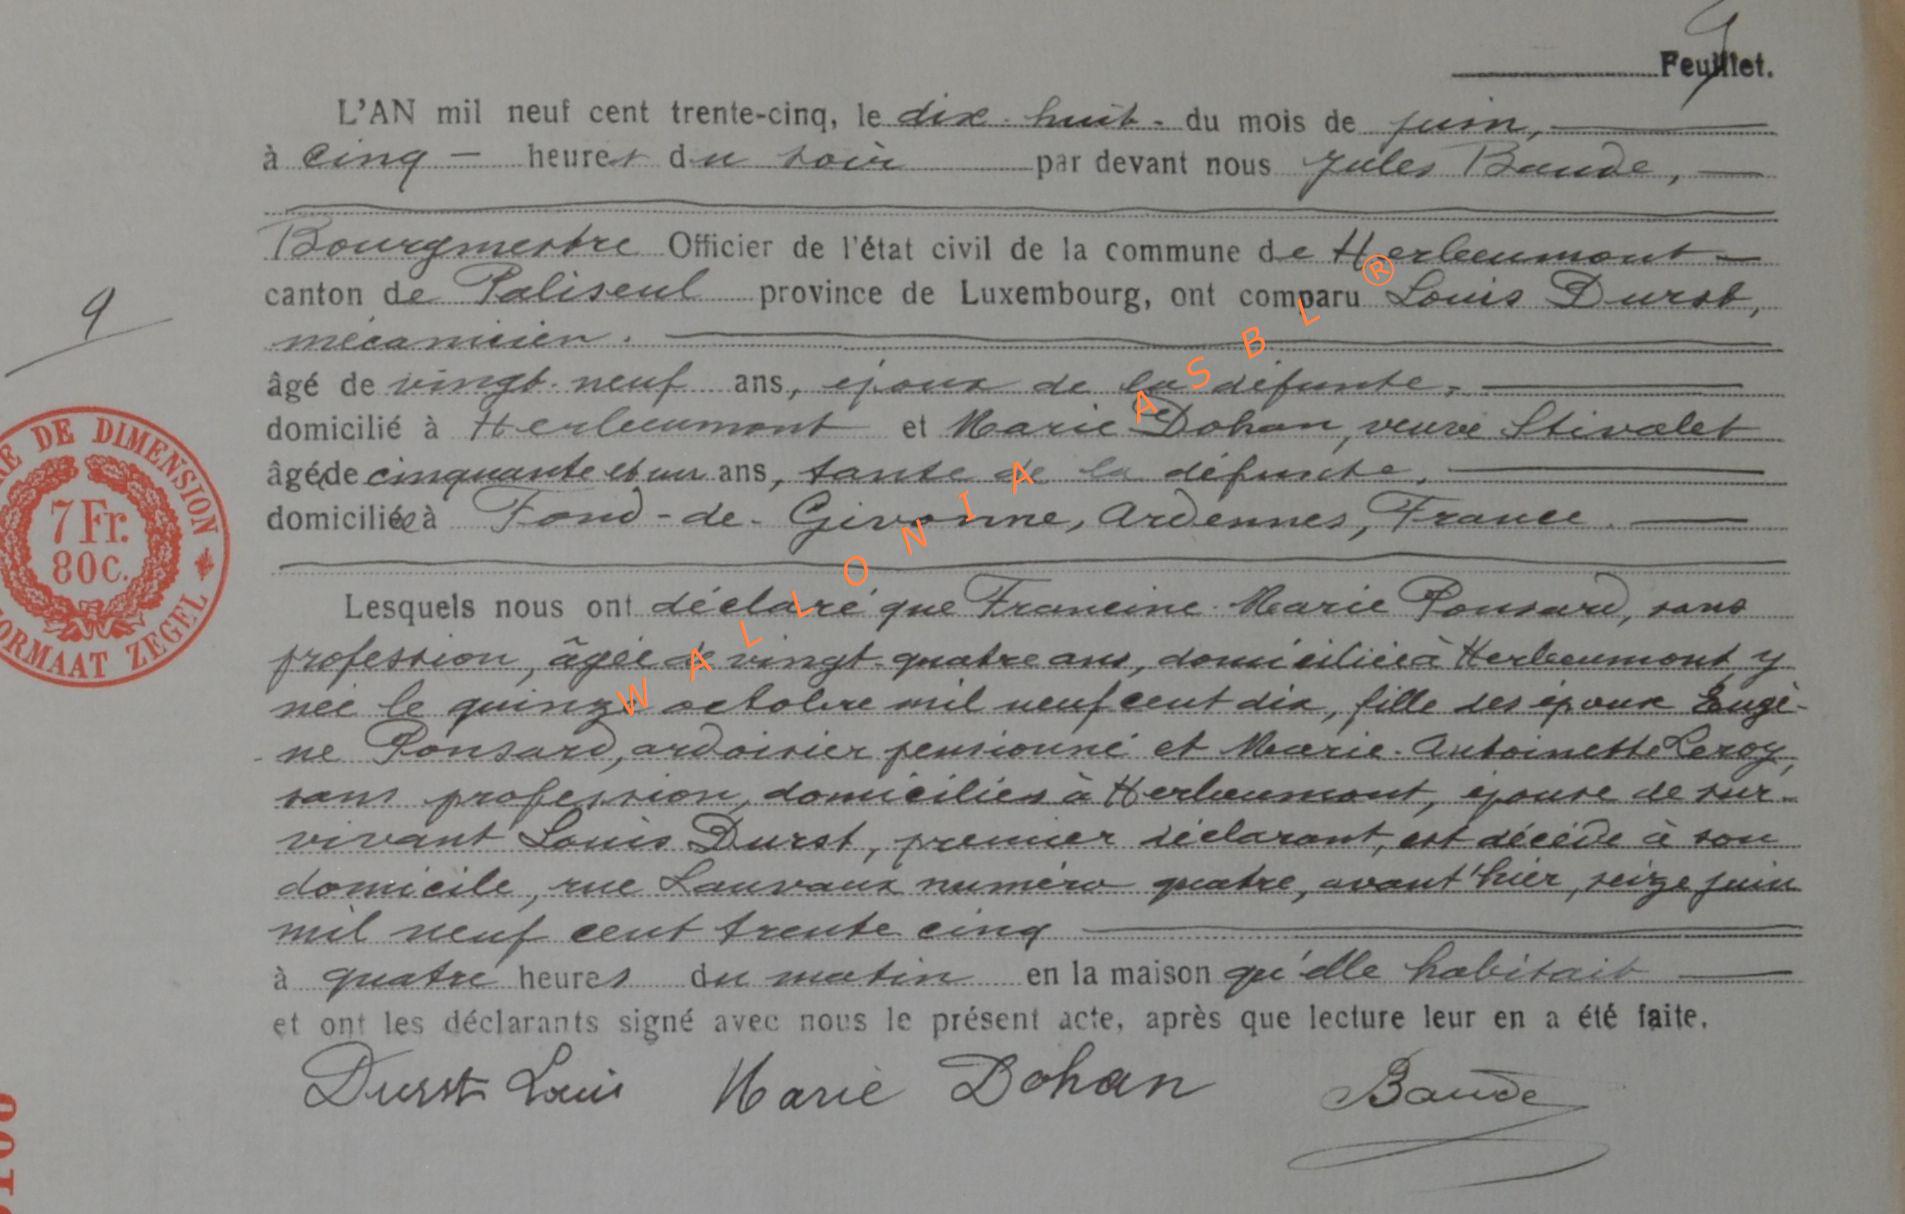 9
Feuillet.
L'AN mil neuf cent trente-cinq, le dix-huit - du mois de juin,
à cinq - heures du soir par devant nous Jules Baude,
Bourgmestre Officier de l'état civil de la commune de Herbeumont
canton de Paliseul province de Luxembourg, ont comparu Louis Durst,
mécanicien.
âgé de vingt-neuf ans, époux de la défunte,
domicilié à Herbeumont et Marie Dohan, veuve Stivalet
âgée de cinquante et un ans, tante de la défunte,
domiciliée à Fond-de-Givonne, Ardennes, France.
Lesquels nous ont déclaré que Francine-Marie Ponsard, sans
profession, âgée de vingt-quatre ans, domiciliée à Herbeumont, y
née le quinze octobre mil neuf cent dix, fille des époux Eugè-
ne Ponsard, ardoisier pensionné et Marie-Antoinette Leroy,
sans profession, domiciliés à Herbeumont, épouse de sur-
vivant Louis Durst, premier déclarant, est décédé à son
domicile, rue Lauvaux numéro quatre, avant'hier, seize juin
mil neuf cent trente cinq
à quatre heures du matin en la maison qu'elle habitait
et ont les déclarants signé avec nous le présent acte, après que lecture leur en a été faite.
Durst Louis Marie Dohan Baude
9
RE DE DIMENSION
7 Fr.
80 C.
ORMAAT ZEGEL
WALLONIA ASBL ®